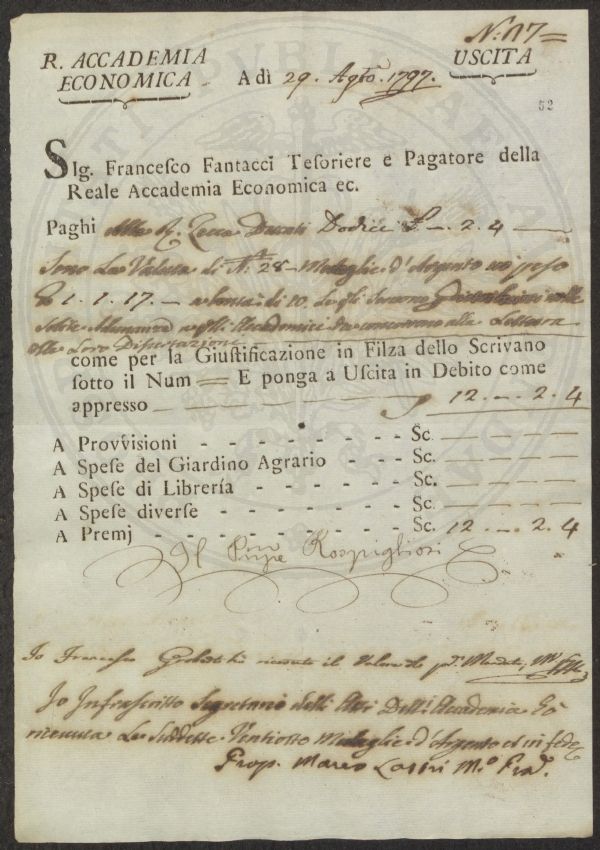 N: 17=
R. ACCADEMIA
ECONOMICA
A dì 29. Agto. 1797.
USCITA
52
SIg. Franceſco Fantacci Teſoriere e Pagatore della
Reale Accademia Economica ec.
Paghi Alla R. Zecca Ducati Dodici £ -. 2. 4
Sono La Valuta di N. 28 - Medaglie d'Argento
1. 1. 17. -
Accademici alla Lettura
Loro Diſsertazioni
come per la Giuſtificazione in Filza dello Scrivano
ſotto il Num = E ponga a Uſcita in Debito come
appreſſo 12 -. 2. 4
A Provviſioni - - - - - - - - - Sc.
A Speſe del Giardino Agrario - - - - Sc.
A Speſe di Librería - - - - - - - Sc.
A Speſe diverſe - - - - - - - - Sc.
A Premj - - - - - - - - - - - Sc. 12 -. 2. 4
Il Pnpe Rospigliosi
Io Francesco ho ricevuto il Valore
Io Infrascritto Segretario degli Atti Dell'Accademia ò
ricevuta Le Suddette Ventiotto Medaglie d'Argento et in fede
Prop. Marco Lastri Mo. Pra.